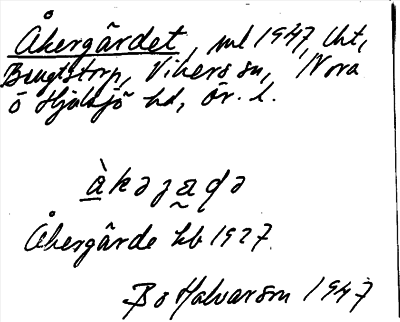 Åkergärdet, ml 1947, tht,
Bengtstorp, Vikers sn, Nora
o Hjulsjö hd, Ör. l.
àkəʒa̰ḍə
Åkergärde hb 1927
Bo Halvarson 1947